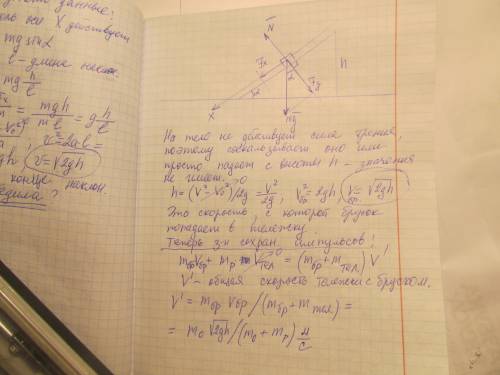 оси X действует
mg sinα
l – длина накл.
mg h/l
= mgh/ml = g h/l
v² = 2al =
v = √2gh
конце наклон.
N
Fx
Fy
h
α
X
mg
На тело не действует сила трения,
поэтому соскальзывает оно или
просто падает с высоты h – значения
не имеет.
h = (V² – V₀²)/2g = V²/2g, Vбр² = 2gh, Vбр = √2gh
Это скорость, с которой брусок
попадает в тележку.
Теперь з-н сохран. импульсов!
mбр Vбр + mт Vтел = (mбр + mтел) V'
V' – общая скорость тележки с бруском.
V' = mбр Vбр / (mбр + mтел) =
= m₀ √2gh / (m₀ + mт) м/с